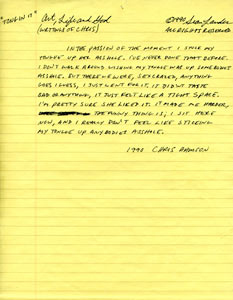 "TONGUE IN IT"
Art, Life and God
(WRITINGS OF CHRIS)
©1990 Sean Landers
ALL RIGHTS RESERVED
IN THE PASSION OF THE MOMENT I STUCK MY
TONGUE UP HER ASSHOLE. I'VE NEVER DONE THAT BEFORE.
I DON'T WALK AROUND WISHING MY TONGUE WAS UP SOMEBODIES
ASSHOLE. BUT THERE WE WERE, SEX CRAZED, ANYTHING
GOES I GUESS, I JUST WENT FOR IT. IT DIDN'T TASTE
BAD OR ANYTHING, IT JUST FELT LIKE A TIGHT SPACE.
I'M PRETTY SURE SHE LIKED IT. IT MADE ME HARDER,
THE FUNNY THING IS; I SIT HERE
NOW, AND I REALLY DON'T FEEL LIKE STICKING
MY TONGUE UP ANYBODIES ASSHOLE.
1990 CHRIS HAMSON